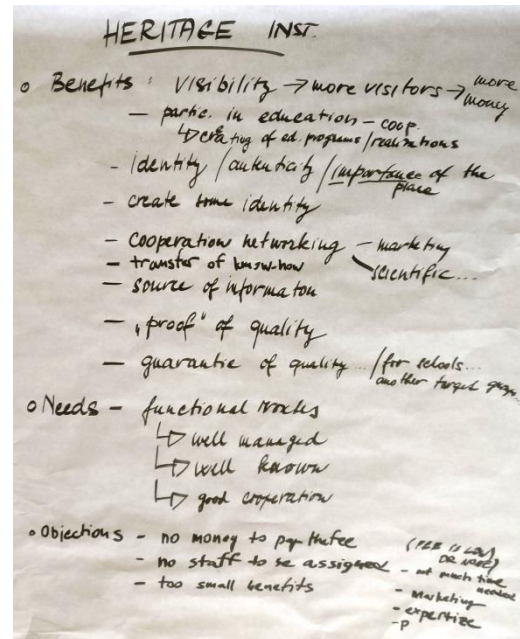 HERITAGE INST.
o Benefits : Visibility → more visitors → more money
— partic. in education — coop.
↳ creating of ed. programs / realizations
- identity / autenticity / importance of the place
- create some identity
- cooperation networking — marketing
scientific...
- transfer of know-how
- source of informaton
- „proof" of quality
- guarantie of quality... / for schools...
another target
o Needs - functional
↳ well managed
↳ well known
↳ good cooperation
o Objections - no money to pay the fee (FEE IS LOW OR NONE)
- no staff to be assigned - not much time needed
- too small benefits - marketing
- expertize
- p